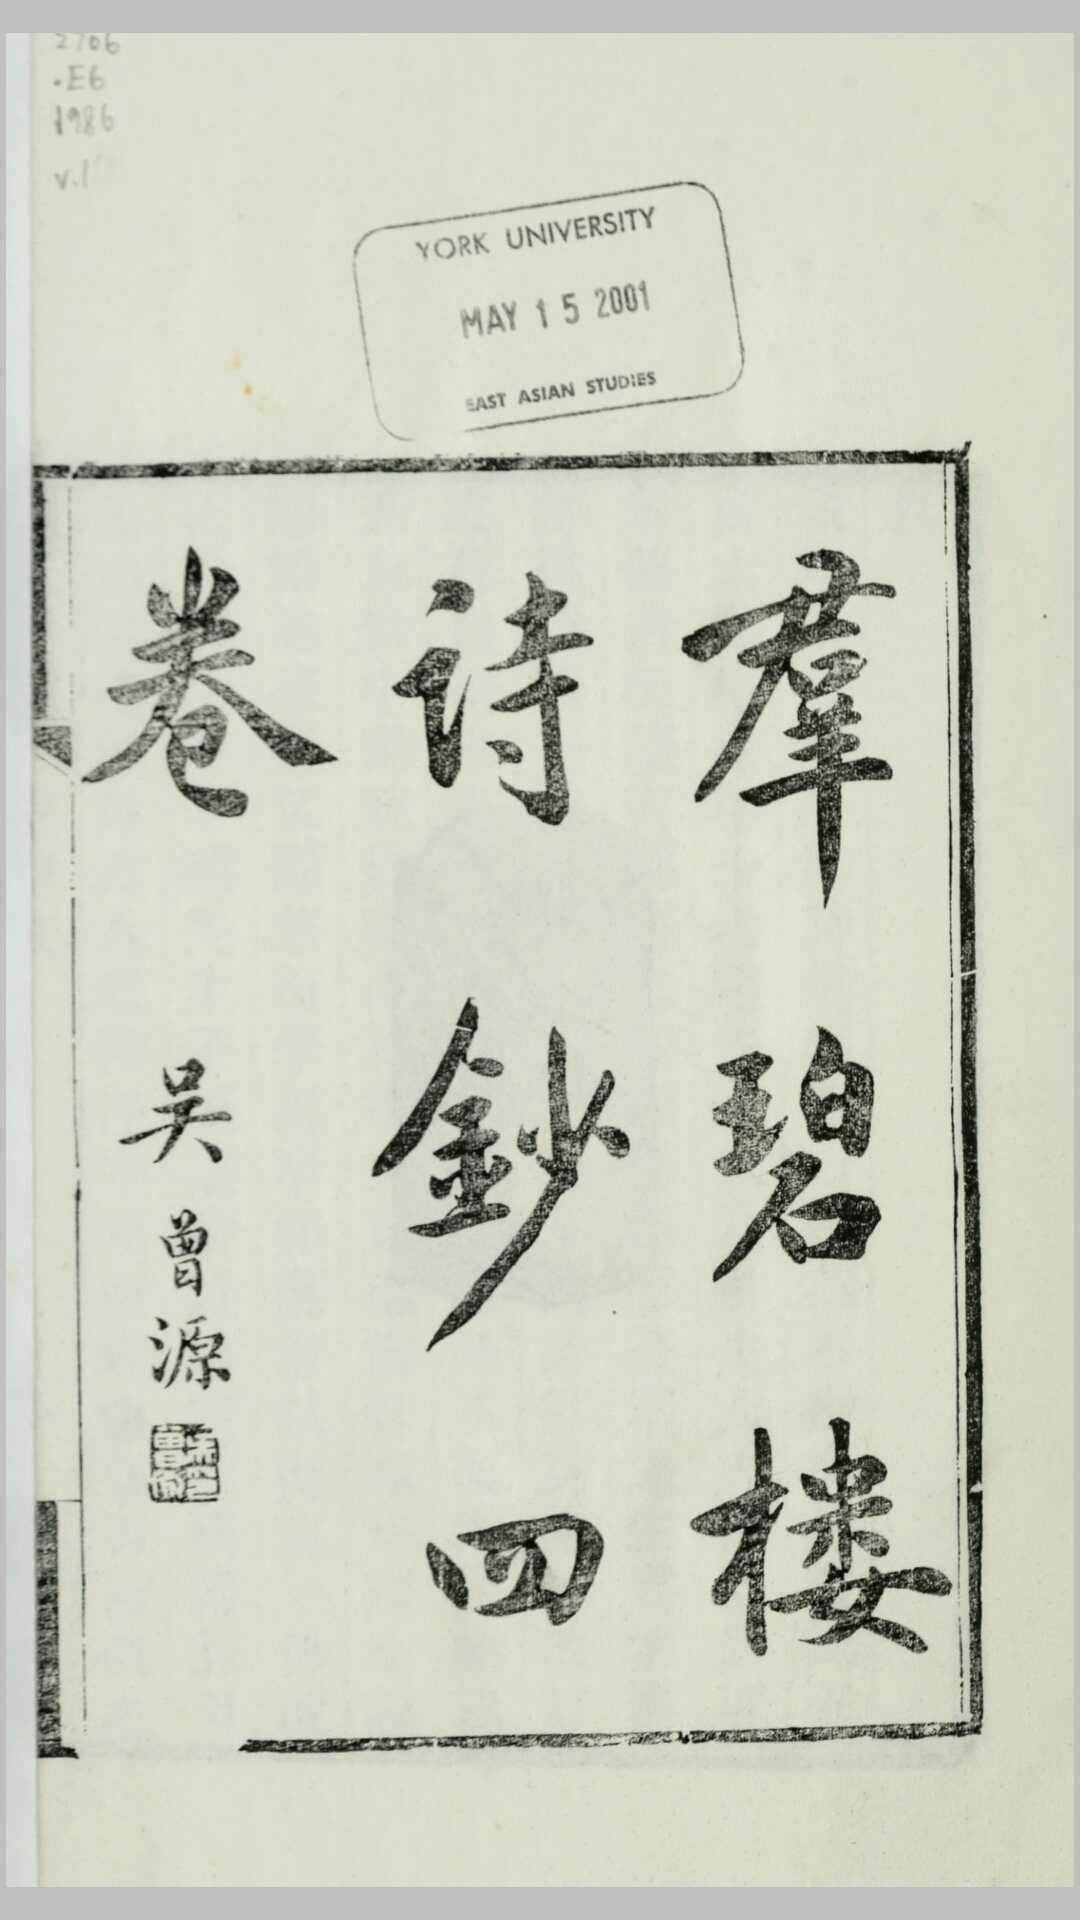 2706
.E6
1986
v.1
YORK UNIVERSITY
MAY 15 2001
EAST ASIAN STUDIES
羣碧樓
詩鈔四
卷
吴曾源